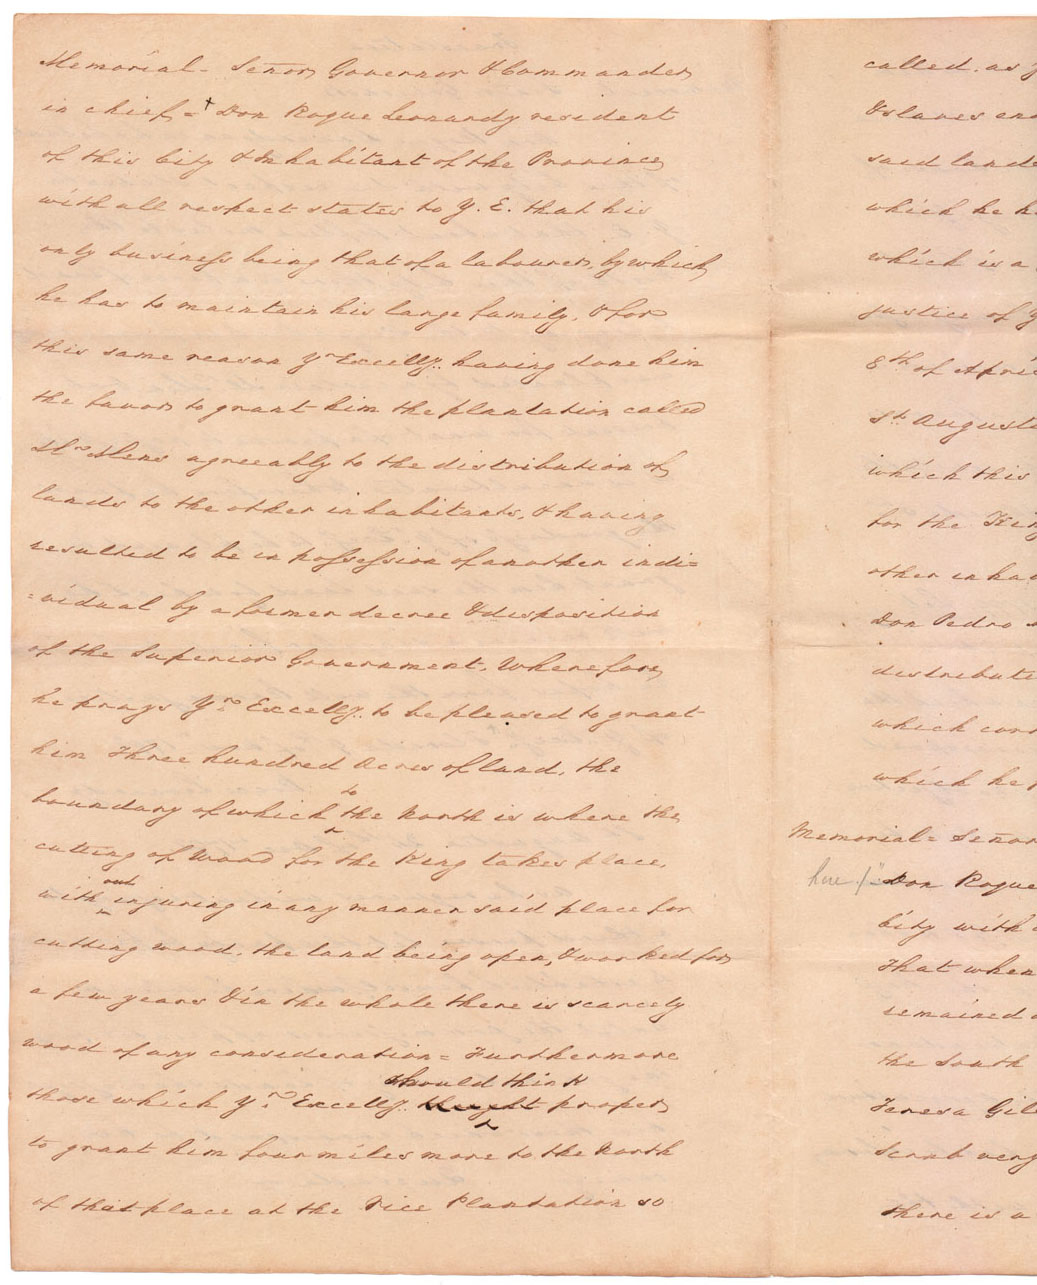 Memorial - Señor Governor & Commander
in chief = + Don Roque Leonardy resident
of this City & Inhabitant of the Province
with all respect states to Y. E. that his
only business being that of a labourer, by which
he has to maintain his large family, & for
this same reason Yr Excelly. having done him
the favor to grant him the plantation called
agreeably to the distribution of
lands to the other inhabitants, & having
resulted to be in possession of another indi=
=vidual by a former decree & disposition
of the Superior Government, Wherefore
he prays Yr. Excelly. to be pleased to grant
him Three hundred Acres of land, the
boundary of which to the North is where the
cutting of Wood for the King takes place,
without injuring in any manner said place for
cutting wood, the land being open, & worked for
a few years & in the whole there is scarcely
wood of any consideration = Furthermore
should think
those which Yr. Excelly. thought proper
to grant him four miles more to the North
of that place at the Rice Plantation so
called, as
& slaves and
said lands
which he
which is a
justice of Y
8th of April
St Augusti
which this
for the King
other inha
Don Pedro
distribute
which
which he
Memorial = Señor
here /" Don Roque
City with
That when
remained
the South
Teresa Gil
Scrub very
there is a